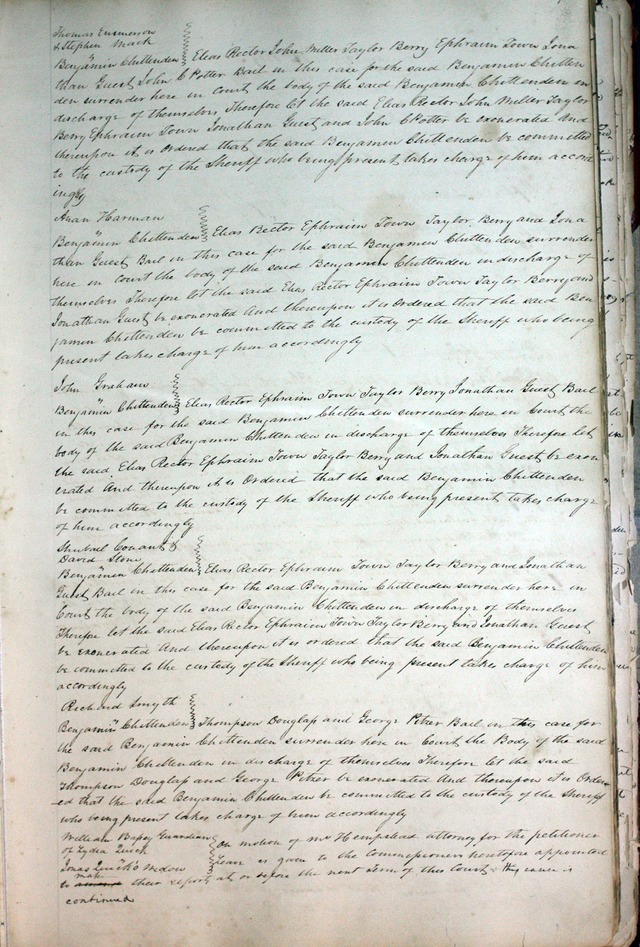 Thomas Emmerson
& Stephen Mack
Benjamin Chittenden Elias Rector John Miller Taylor Berry Ephraim Town Jona
than Guest John C Potter Bail in this case for the said Benjamin Chitten
den surrender here in Court the body of the said Benjamin Chittenden in
discharge of themselves Therefore let the said Elias Rector John Miller Taylor
Berry Ephraim Town Jonathan Guest and John C Potter be exonerated And
thereupon it is Ordered that the said Benjamin Chittenden be committed
to the custody of the Sheriff who being present takes charge of him accord
ingly
Harman
Benjamin Chittenden Elias Rector Ephraim Town Taylor Berry and Jona
than Guest Bail in this case for the said Benjamin Chittenden surrender
here in Court the body of the said Benjamin Chittenden in discharge of
themselves Therefore let the said Elias Rector Ephraim Town Taylor Berry and
Jonathan Guest be exonerated And thereupon it is Ordered that the said Ben
jamin Chittenden be committed to the custody of the Sheriff who being
present takes charge of him accordingly
John Graham
Benjamin Chittenden Elias Rector Ephraim Town Taylor Berry Jonathan Guest Bail
in this case for the said Benjamin Chittenden surrender here in Court the
body of the said Benjamin Chittenden in discharge of themselves Therefore let
the said Elias Rector Ephraim Town Taylor Berry and Jonathan Guest be exon
erated And thereupon it is Ordered that the said Benjamin Chittenden
be committed to the custody of the Sheriff who being present takes charge
of him accordingly
Shubael Conant &
David Stone
Benjamin Chittenden Elias Rector Ephraim Town Taylor Berry and Jonathan
Guest Bail in this case for the said Benjamin Chittenden surrender here in
Court the body of the said Benjamin Chittenden in discharge of themselves
Therefore let the said Elias Rector Ephraim Town Taylor Berry and Jonathan Guest
be exonerated And thereupon it is ordered that the said Benjamin Chittenden
be committed to the custody of the Sheriff who being present takes charge of him
accordingly
Richard Smyth
Benjamin Chittenden Thompson Douglass and George Petrer Bail in this case for
the said Benjamin Chittenden surrender here in Court the Body of the said
Benjamin Chittenden in discharge of themselves Therefore let the said
Thompson Douglass and George Petrer be exonerated And thereupon it is Order
ed that the said Benjamin Chittenden be committed to the custody of the Sheriff
who being present takes charge of him accordingly
William Bassey Guardian
of Lydia Quick On motion of Mr Hempstead attorney for the petitioner
Jonas Quick's Widow leave is given to the Commissioners heretofore appointed
to make their report at or before the next term of this Court & this cause is
continued